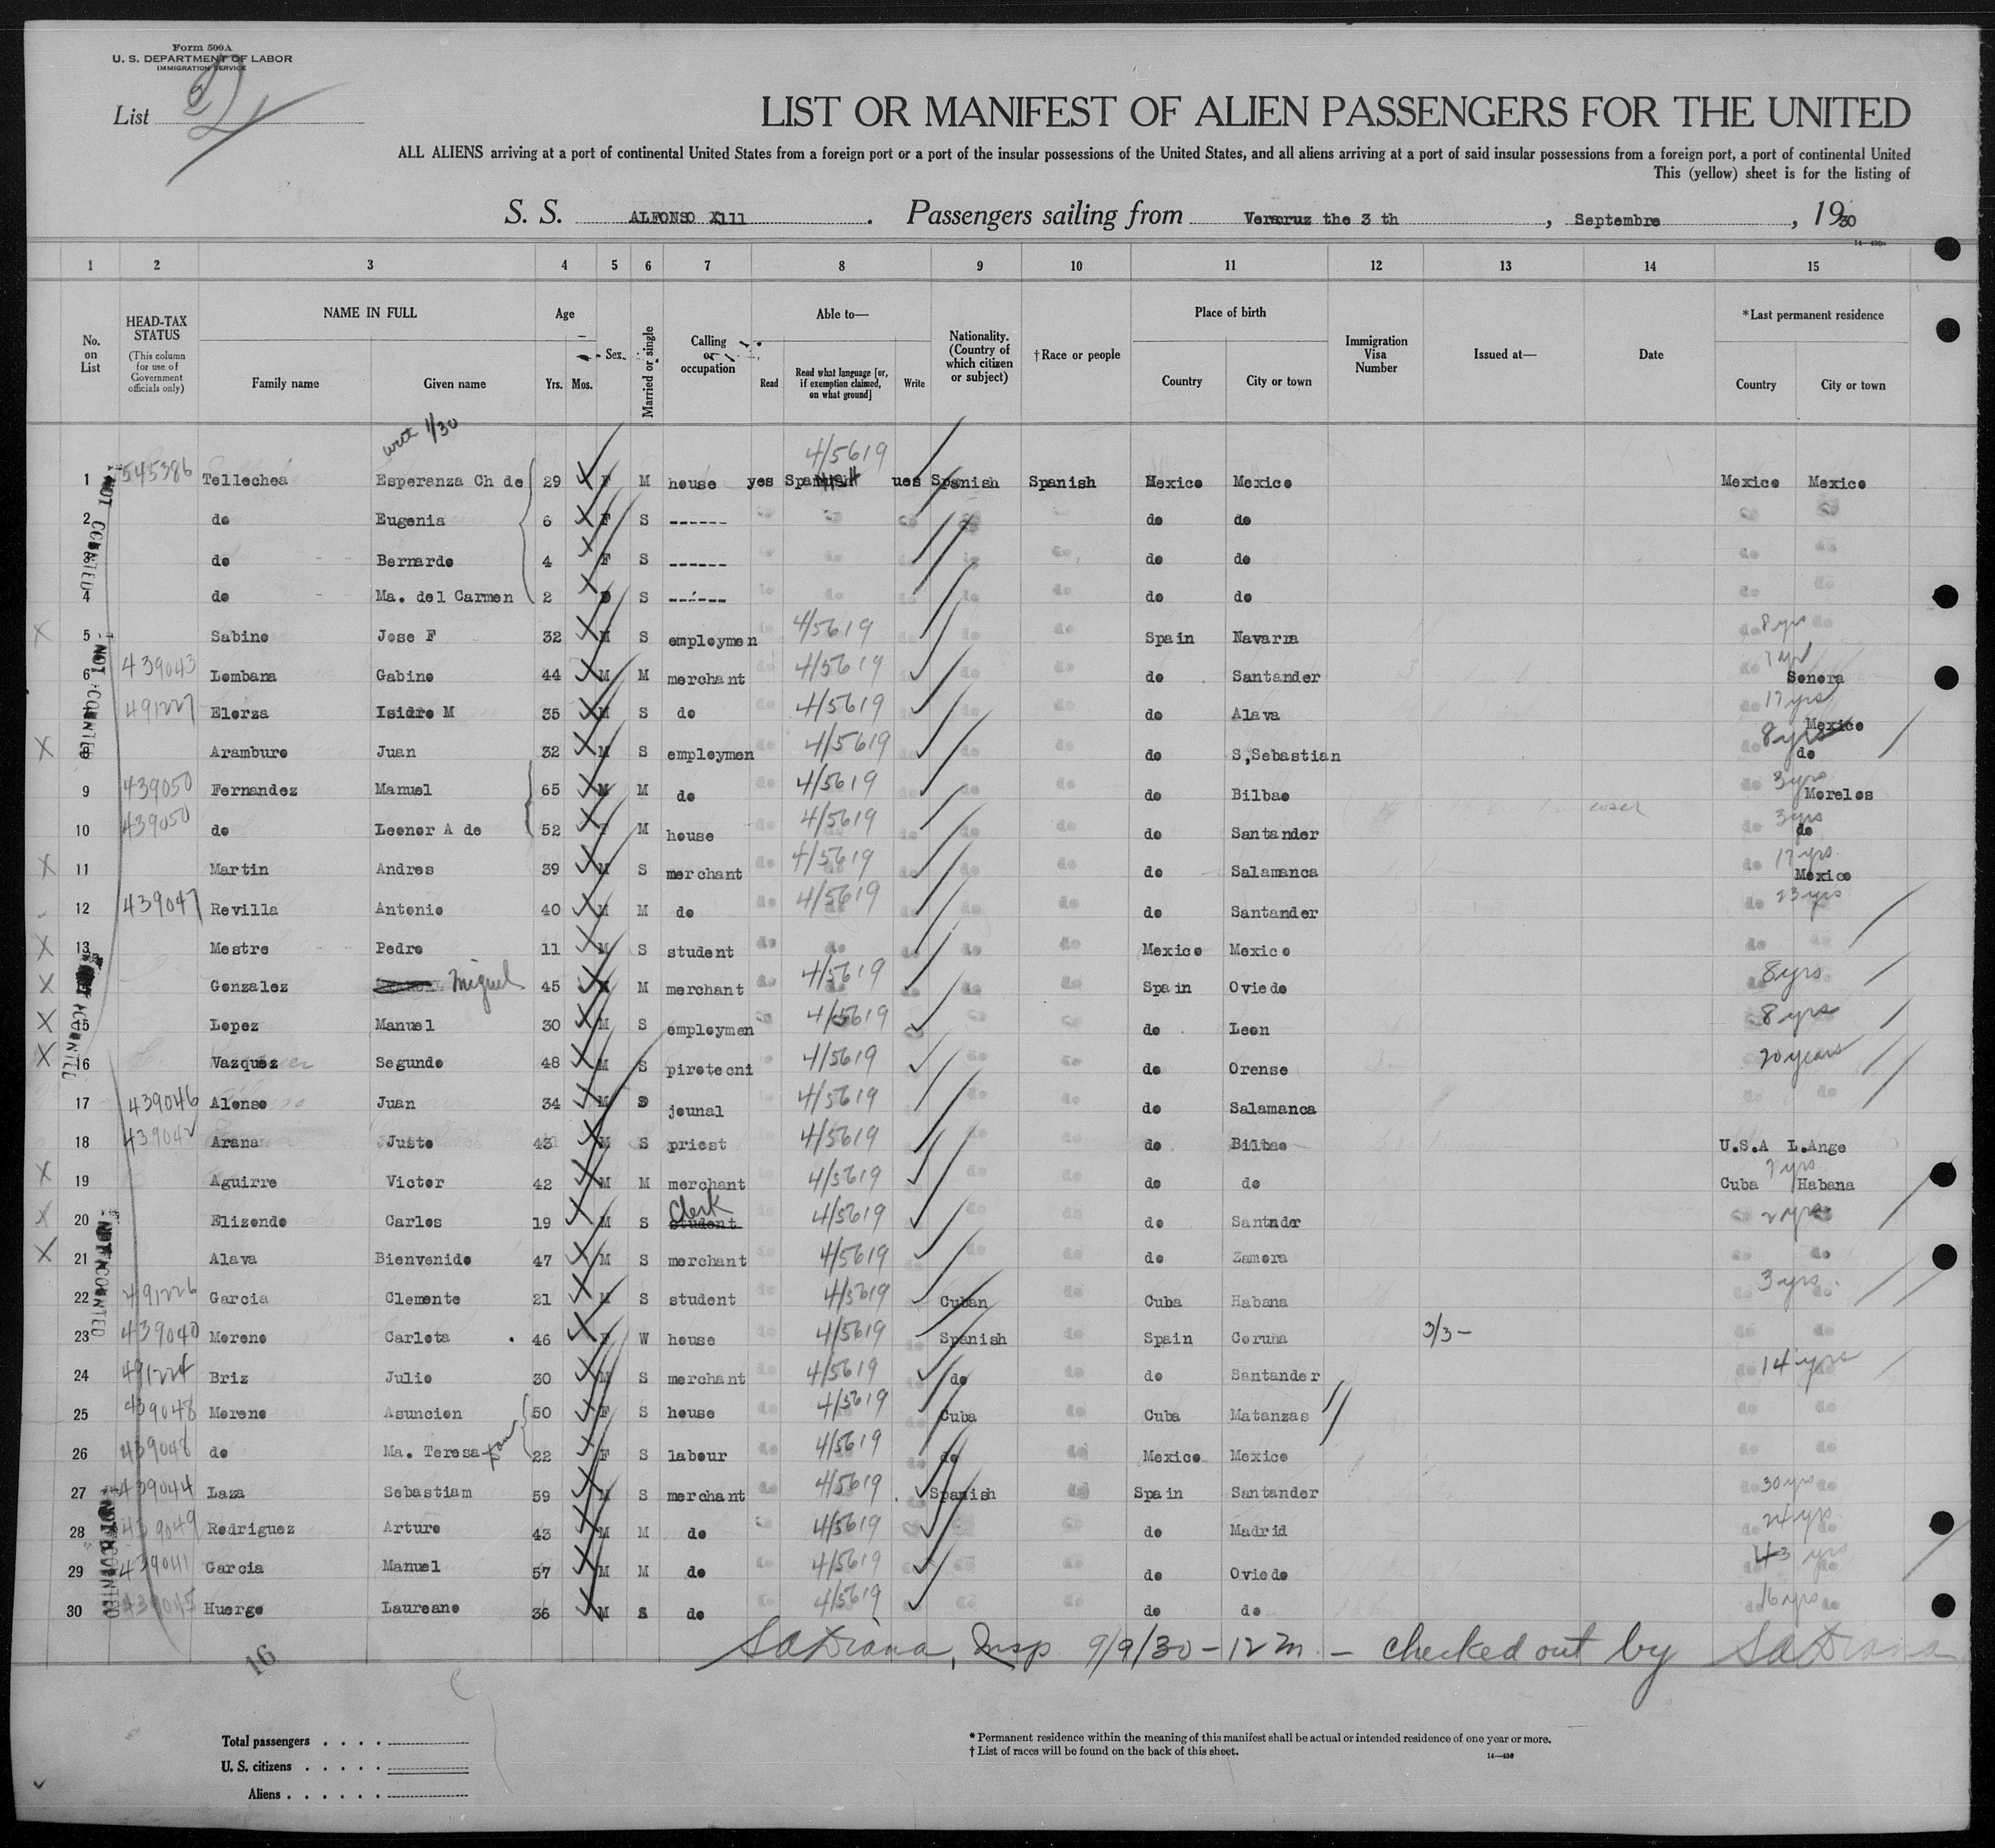 Form 500A
U. S. DEPARTMENT OF LABOR
IMMIGRATION SERVICE
List 2
LIST OR MANIFEST OF ALIEN PASSENGERS FOR THE UNITED
ALL ALIENS arriving at a port of continental United States from a foreign port or a port of the insular possessions of the United States, and all aliens arriving at a port of said insular possessions from a foreign port, a port of continental United
This (yellow) sheet is for the listing of
S. S. ALFONSO X111 . Passengers sailing from Veracruz the 3 th , Septembre , 1930
1 2 3 4 5 6 7 8 9 10 11 12 13 14 15
No. on List
HEAD-TAX STATUS (This column for use of Government officials only)
NAME IN FULL Family name Given name
Age Yrs. Mos.
Sex
Married or single
Calling or occupation
Able to— Read Read what language [or, if exemption claimed, on what ground] Write
Nationality. (Country of which citizen or subject)
†Race or people
Place of birth Country City or town
Immigration Visa Number
Issued at—
Date
*Last permanent residence Country City or town
1 545386 Tellechea Esperanza Ch de 29 F M house yes Spanish 4/5619 ues Spanish Spanish Mexico Mexico Mexico Mexico
2 do Eugenia 6 F S ------ do do
3 do Bernardo 4 F S ------ do do do do
4 do Ma. del Carmen 2 S ------ do do do do
5 Sabino Jose F 32 M S employmen 4/5619 do do Spain Navarra do 8yrs do
6 439043 Lombana Gabino 44 M M merchant 4/5619 do do do Santander do Sonora
7 491227 Elorza Isidro M 35 M S do 4/5619 do do do Alava do 17 yrs Mexico
8 Aramburo Juan 32 M S employmen 4/5619 do do do S,Sebastian do 8yrs do
9 439050 Fernandez Manuel 65 M M do 4/5619 do do do Bilbao do 3yrs Morelos
10 439050 do Leonor A de 52 F M house 4/5619 do do do Santander do 3yrs do
11 Martin Andres 39 M S merchant 4/5619 do do do Salamanca do 17 yrs. Mexico
12 439047 Revilla Antonio 40 M M do 4/5619 do do do Santander do 23yrs
13 Mestre Pedro 11 M S student do do do do Mexico Mexico do do
Gonzalez Miguel 45 M M merchant do 4/5619 do do Spain Oviedo 8yrs
15 Lopez Manuel 30 M S employmen 4/5619 do Leon 8 yrs
16 Vazquez Segundo 48 M S pirotecni 4/5619 do do do Orense 20 years
17 439046 Alonso Juan 34 M S jounal 4/5619 do do do Salamanca do do
18 439042 Arana Justo 43 M S priest 4/5619 do do do Bilbao U.S.A L.Ange
19 Aguirre Victor 42 M M merchant 4/5619 do do do do Cuba 7 yrs. Habana
20 Elizondo Carlos 19 M S student Clerk 4/5619 do do do Santnder 2 yrs
21 Alava Bienvenido 47 M S merchant 4/5619 do do Zamora do do
22 491226 Garcia Clemente 21 M S student 4/5619 Cuban do Cuba Habana 3 yrs. do
23 439040 Moreno Carlota . 46 F W house do 4/5619 Spanish do Spain Coruña 3/3- do do
24 491224 Briz Julio 30 M S merchant 4/5619 do do do Santander do 14 yrs
25 439048 Moreno Asuncion 50 F S house do 4/5619 Cuba do Cuba Matanzas do do
26 439048 do Ma. Teresa 22 F S labour do 4/5619 do do Mexico Mexico do do
27 439044 Laza Sebastiam 59 M S merchant do 4/5619 Spanish do Spain Santander do 30 yrs do
28 439049 Rodriguez Arturo 43 M M do 4/5619 do do Madrid do 24 yrs. do
29 439041 Garcia Manuel 57 M M do do 4/5619 do do do Oviedo 43 yrs
30 439045 Huergo Laureano 36 M S do do 4/5619 do do do do do 16 yrs do
NOT COUNTED
NOT COUNTED
NOT COUNTED
NOT COUNTED
SaDiana, Insp 9/9/30 - 12 m. - checked out by SaDiana
16
Total passengers
U. S. citizens
Aliens
* Permanent residence within the meaning of this manifest shall be actual or intended residence of one year or more.
† List of races will be found on the back of this sheet.
14—430